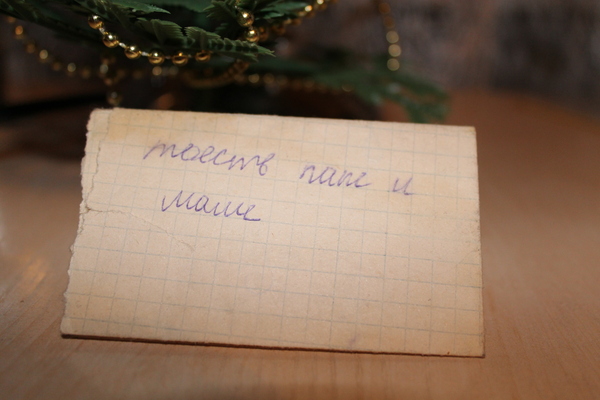 тоесть папе и
маме